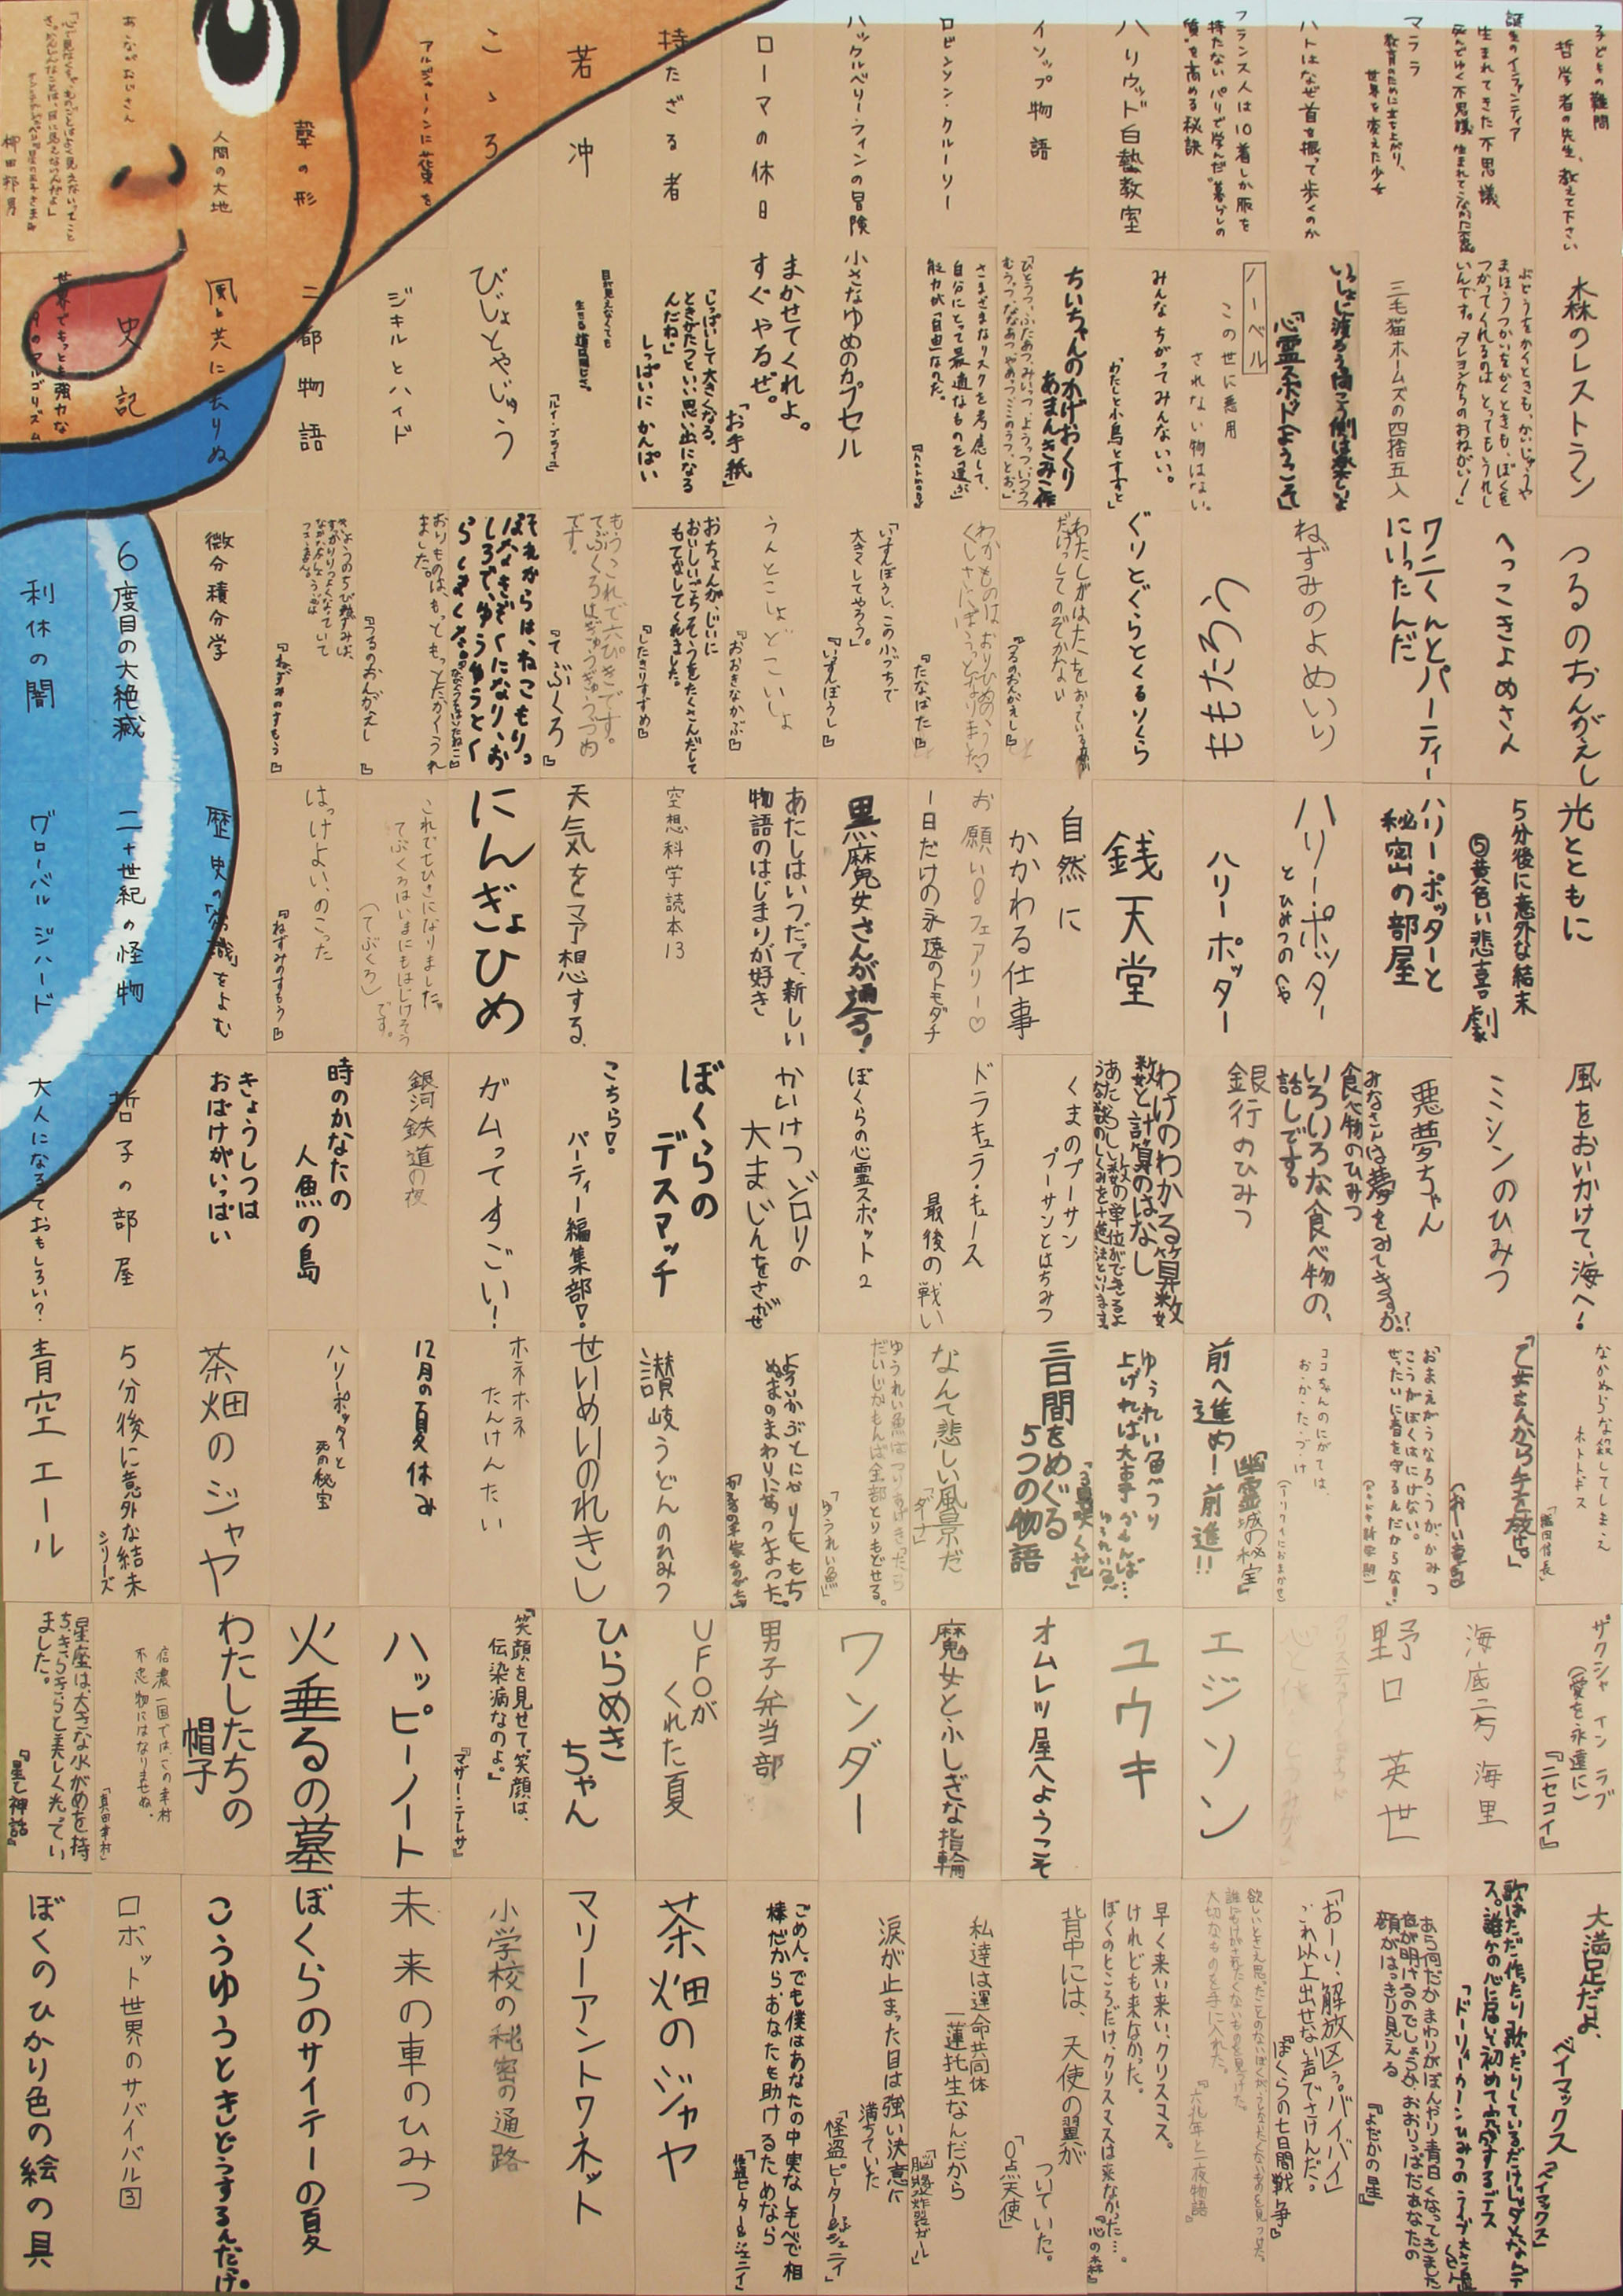 子どもの難問
哲学者の先生、教えて下さい
誕生のインファンティア
生まれてきた不思議
死んでゆく不思議 生まれてこなかった不思議
マララ
教育のために立ち上がり、
世界を変えた少女
ハトはなぜ首を振って歩くのか
フランス人は10着しか服を
持たない パリで学んだ“暮らしの
質”を高める秘訣
ハリウッド白熱教室
イソップ物語
ロビンソン・クルーソー
ハックルベリー・フィンの冒険
ローマの休日
持たざる者
若冲
こゝろ
アルジャーノンに花束を
聲の形
人間の大地
あしながおじさん
柳田邦男
森のレストラン
ぶどうをかくときも、かいじゅうや
まほうつかいをかくときも、ぼくを
つかってくれるのは とってもうれし
いんです。クレヨンからのおねがい!
三毛猫ホームズの四捨五入
いっしょに渡ろう 向こう側は楽しいよ
『心霊スポットへようこそ』
ノーベル
この世に悪用
されない物はない。
みんなちがってみんないい。
「わたしと小鳥とすずと」
ちいちゃんのかげおくり
あまんきみこ作
「ひとうつ、ふたあつ、みいっつ、ようっつ、いつうつ
むうっつ、ななあつ、やあっつ、ここのうつ、とお」
さまざまなリスクを考慮して、
自分にとって最適なものを選ぶ
能力が「自由」なのだ。
小さなゆめのカプセル
まかせてくれよ。
すぐやるぜ。
「お手紙」
「しっぱいして大きくなる。
ときがたつといい思い出になる
んだね。」
しっぱいに かんぱい
目が見えなくても
『ルイ・ブライユ』
びじょとやじゅう
ジキルとハイド
二都物語
風と共に去りぬ
史記
世界でもっとも強力な
9のアルゴリズム
つるのおんがえし
へっこきよめさん
ワニくんとパーティー
にいったんだ
ねずみのよめいり
うろたもも
ぐりとぐらとくるりくら
わたしがはたをおっている間
だけっしてのぞかない
『つるのおんがえし』
『たなばた』
「いっすんぼうし、この小づちで
大きくしてやろう」。
『いっすんぼうし』
うんとこしょどこいしょ
『おおきなかぶ』
おちょんが、じいに
おいしいごちそうをたくさんだして
もてなしてくれました。
『したきりすずめ』
もうこれで六ぴきです。
てぶくろはぎゅうぎゅうづめ
です。
『てぶくろ』
おりものは、もっともっとたかくうれ
ました。
『つるのおんがえし』
『ねずみのすもう』
微分積分学
6度目の大絶滅
利休の闇
光とともに
5分後に意外な結末
⑤黄色い悲喜劇
ハリー・ポッターと
秘密の部屋
ハリーポッター
とひみつのへや
ハリーポッター
銭天堂
自然に
かかわる仕事
お願い!フェアリー♡
一日だけの永遠のトモダチ
黒魔女さんが通る!
あたしはいつだって、新しい
物語のはじまりが好き
空想科学読本13
天気を予想する
にんぎょひめ
これで七ひきになりました。
てぶくろはいまにもはじけそう
です。
(てぶくろ)
はっけよい、のこった
『ねずみのすもう』
歴史の常識をよむ
二十世紀の怪物
グローバルジハード
風をおいかけて、海へ!
ミシンのひみつ
悪夢ちゃん
みなさんは夢をみてきますか?
食べ物のひみつ
いろいろな食べ物の、
話しです。
銀行のひみつ
わけのわかる算数
数と計算のはなし
くまのプーサン
プーサンとはちみつ
ドラキュラ・キュース
最後の戦い
ぼくらの心霊スポット2
かいけつゾロリの
大まじんをさがせ
ぼくらの
デスマッチ
こちら!
パーティー編集部!
ガムってすごい!
銀河鉄道の夜
時のかなたの
人魚の島
きょうしつは
おばけがいっぱい
哲子の部屋
大人になるっておもしろい?
なかぬなら殺してしまえ
ホトトギス
「織田信長」
「乙女さんから手を放せ。」
「おまえがうなろうが、かみつ
こうがぼくはにげない。
ぜったいに君を守るんだからな!」
ココちゃんのにがては、
おかたづけ
前へ進め!前進!!
『幽霊城の秘宝』
ゆうれい魚つり
上げれば大事 かんんば…
ゆうれい魚
三日間をめぐる
5つの物語
「3日月に咲く花」
なんて悲しい風景だ
ゆうれい魚はつりあげきったら
だいじかもんば全部とりもどせる。
「ゆうれい魚」
ようかぶとにかりをもち
ぬまのまわりにあつまった。
讃岐うどんのひみつ
せいめいのれきし
ホネホネ
たんけんたい
12月の夏休み
ハリーポッターと
死の秘宝
茶畑のジャヤ
5分後に意外な結末
シリーズ
青空エール
ザクシャ イン ラブ
(愛を永遠に)
『ニセコイ』
海底二万海里
野口 英世
エジソン
ユウキ
オムレツ屋へようこそ
魔女とふしぎな指輪
ワンダー
男子弁当部
UFOが
くれた夏
ひらめき
ちゃん
「笑顔を見せて。笑顔は、
伝染病なのよ。」
『マザー・テレサ』
ハッピーノート
火垂るの墓
わたしたちの
帽子
信濃一国では、この幸村
不忠物にはなりませぬ。
「真田幸村」
星座は、大きな水がめを持
ち、きらきらと美しく光ってい
ました。
『星と神話』
大満足だよ、
ベイマックス
「ベイマックス」
歌はただ作ったり歌ったりしているだけじゃダメなんデ
ス。誰かの心に届いて初めて完成するデス
あら何だかまわりがぼんやり青白くなってきました
夜が明けるのでしょうか、おおりっぱだあなたの
顔がはっきり見える
『よだかの星』
「おーい、解放区ぅ。バイバイ」
これ以上出せない声でさけんだ。
『ぼくらの七日間戦争』
大切なものを手に入れた。
早く来い来い、クリスマス。
けれども来なかった。
ぼくのところだけ、クリスマスは来なかった…。
『心の森』
背中には、天使の翼が
ついていた。
「0点天使」
私達は運命共同体
一蓮托生なんだから
『脳漿炸裂ガール』
涙が止まった目は強い決意に
満ちていた
「怪盗ピーター&ジェニイ」
ごめん。でも僕はあなたの中実なしもべで相
棒だから、あなたも助けるためなら
「怪盗ピーター&ジェニイ」
茶畑のジャヤ
マリーアントワネット
小学校の秘密の通路
未来の車のひみつ
ぼくらのサイテーの夏
こうゆうときどうするんだっけ
ロボット世界のサバイバル3
ぼくのひかり色の絵の具